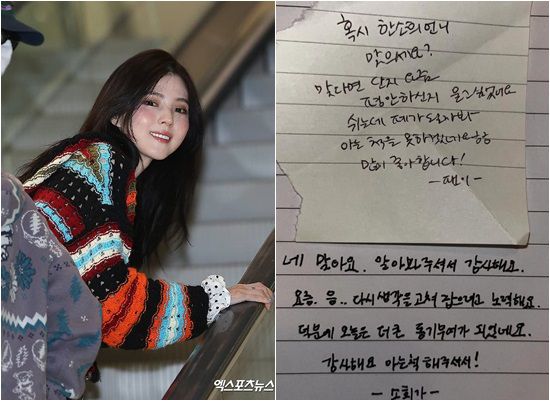 혹시 한소희언니
맞으세요?
맞다면 단지 요즘
평안하신지 묻고싶었어요
쉬는데 제가 도와봐
아는 척을 못하겠네요ㅎㅎ
많이 좋아합니다!
-팬이-
네 맞아요. 알아봐주셔서 감사해요.
요즘. 음.. 다시 생각을 고쳐 잡으려고 노력해요.
덕분에 오늘은 더 큰 동기부여가 되었네요.
감사해요 아는척 해주셔서!
-소희가-
엑스포츠뉴스